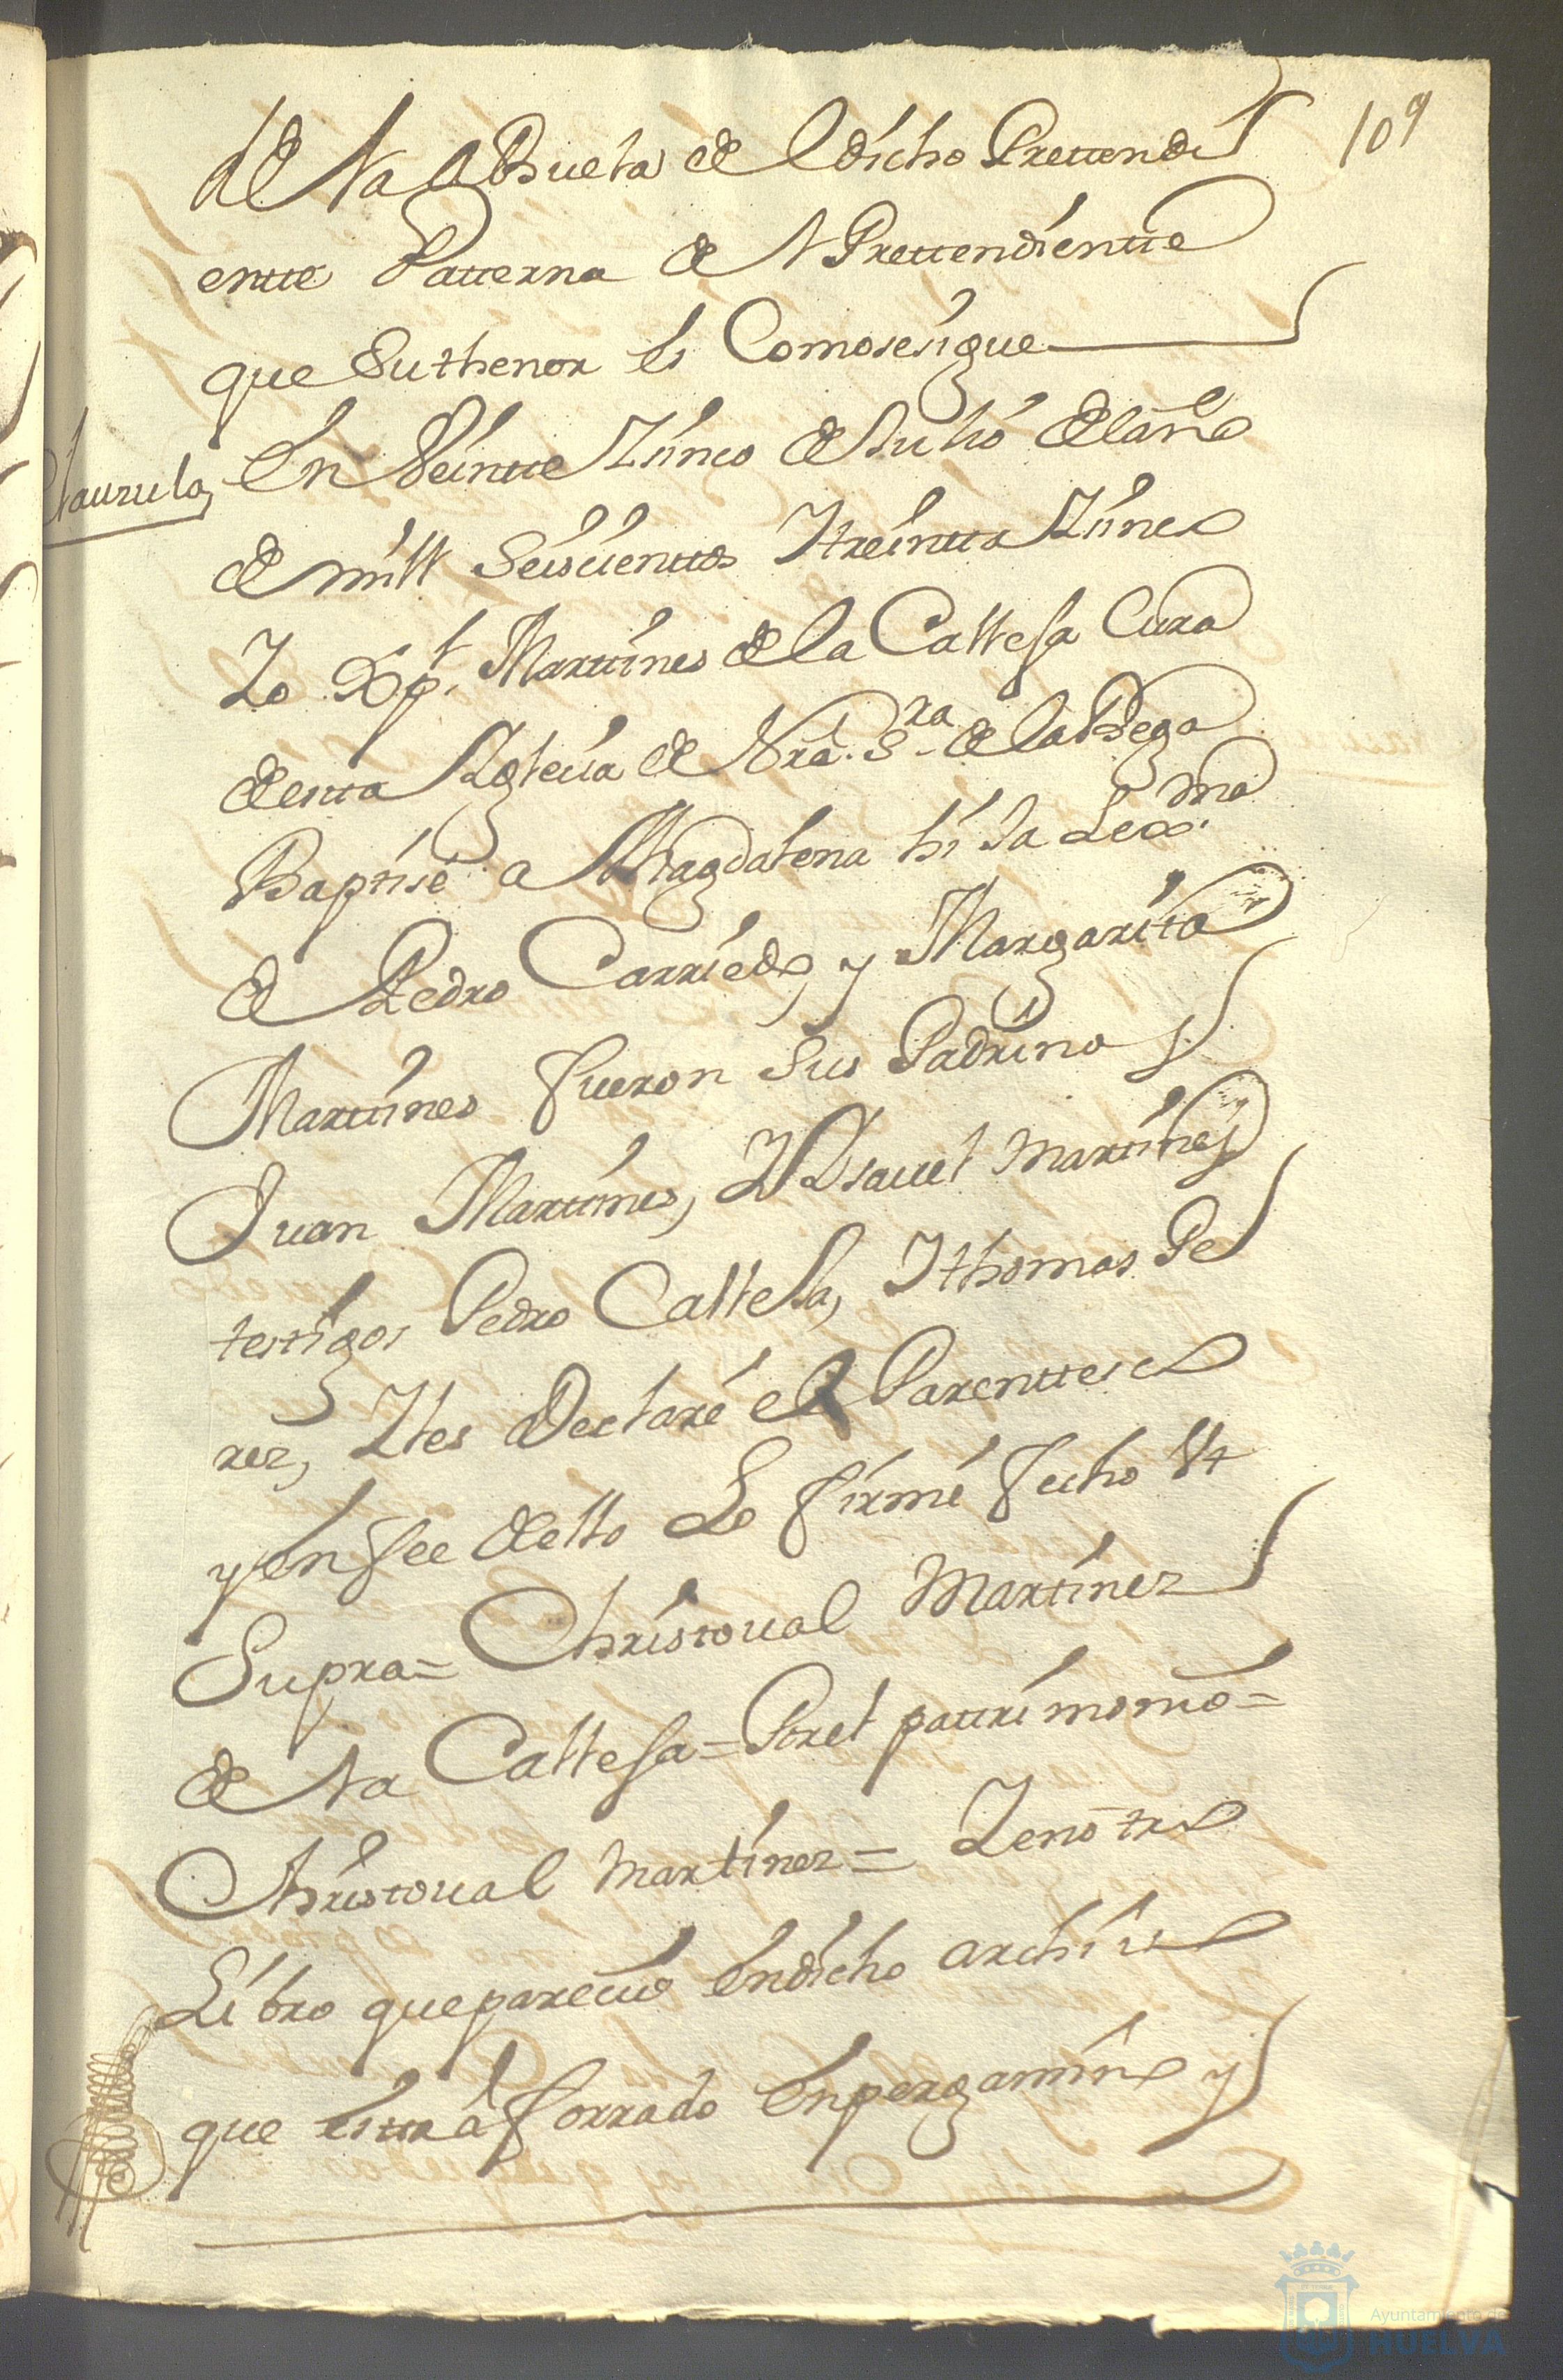 109
de la Abuela de el dicho Prettendi
entte Patterna de el Prettendientte
que Su thenor es Como se sigue
Clauzula
En Veintte Zinco de Julio de el año
de mill Seiscienttos Y treintta Zinco
Yo Xpl. Marttines de la Callesa Cura
de estta Yglecia de Nra. Sra de la Vega
Baptisé a Magdalena hija Lexma
de Pedro Carriedo, y Margarita
Marttines fueron Sus Padrinos
Juan Marttines, Y Ysavel Marttines
testigos Pedro Callesa, Y thomas Pe
rez, Y les Declaré el Parenttesco
y en fee de ello Lo firmé fecho Vt
Supra= Christoval Martinez
de la Callesa= Por el pattrimonio=
Christoval Martinez= Y en otro
Libro que parecio En dicho archivo
que esttá forrado En pergamino y
Ayuntamiento de
HUELVA